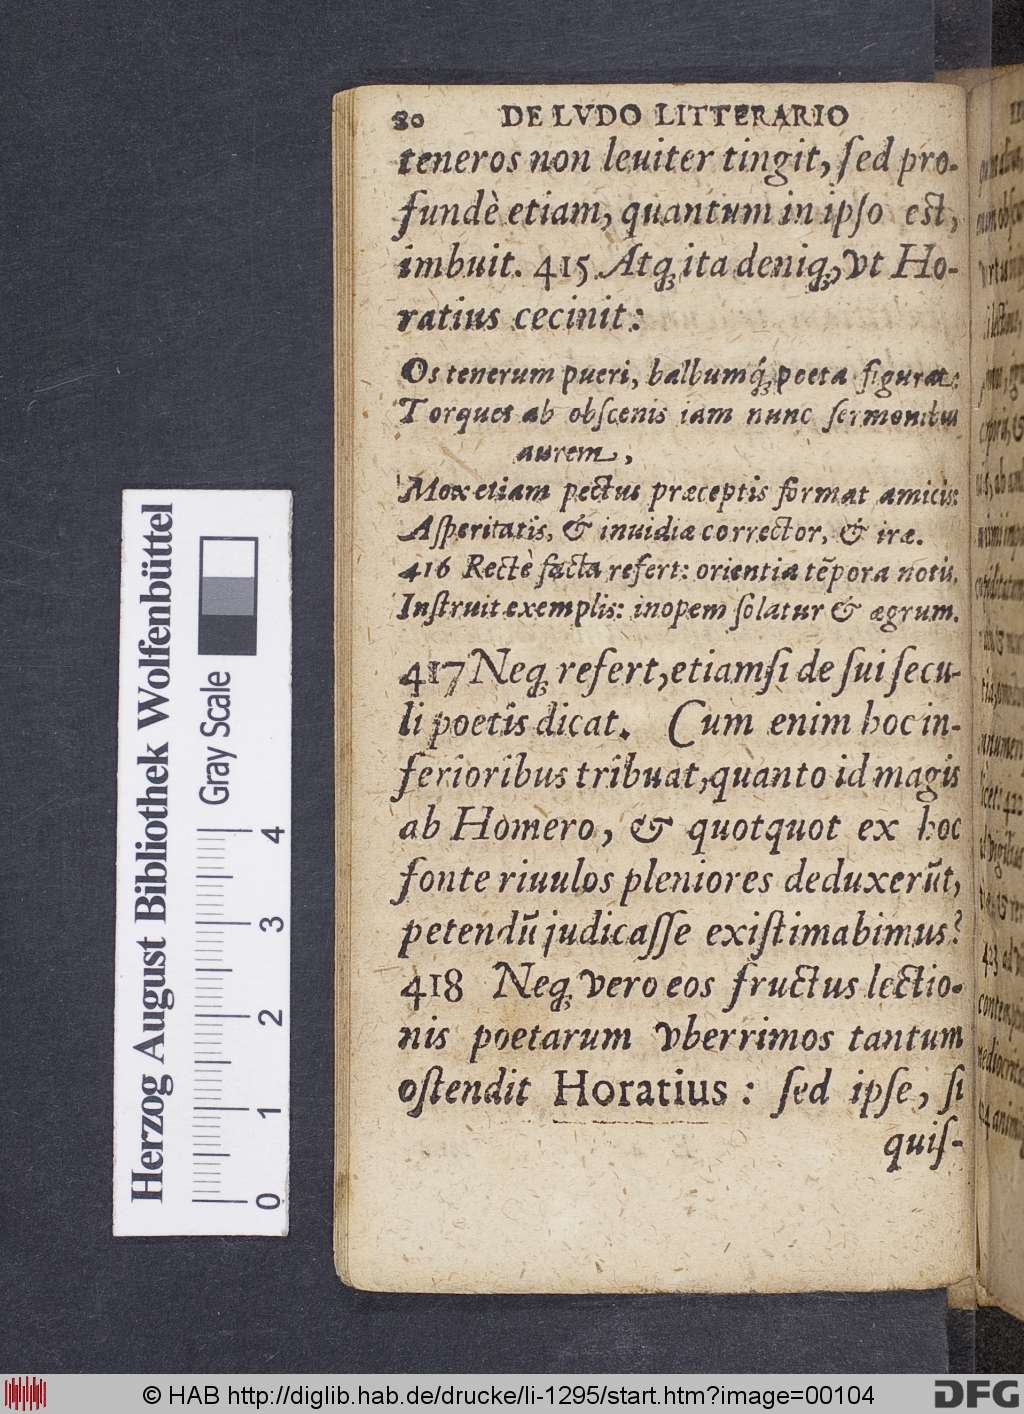 80 DE LVDO LITTERARIO
teneros non leuiter tingit, ſed pro-
fundè etiam, quantum in ipſo est,
imbuit. 415 Atq; ita deniq;, vt Ho-
ratius cecinit:
Os tenerum pueri, balbumq́; poeta figurat:
Torquet ab obſcenis iam nunc ſermonibus
aurem,
Mox etiam pectus præceptis format amicis:
Aſperitatis, & inuidiæ corrector, & iræ.
416 Rectè facta refert: orientia tẽpora notis,
Inſtruit exemplis: inopem ſolatur & ægrum.
417 Neq; refert, etiamſi de ſui ſecu-
li poetis dicat. Cum enim hoc in-
ferioribus tribuat, quanto id magis
ab Homero, & quotquot ex hoc
fonte riuulos pleniores deduxerũt,
petendũ judicaſſe exiſtimabimus?
418 Neq; vero eos fructus lectio-
nis poetarum vberrimos tantum
oſtendit Horatius: ſed ipſe, ſi
quiſ-
Herzog August Bibliothek Wolfenbüttel
Gray Scale
0 1 2 3 4
© HAB http://diglib.hab.de/drucke/li-1295/start.htm?image=00104
DFG